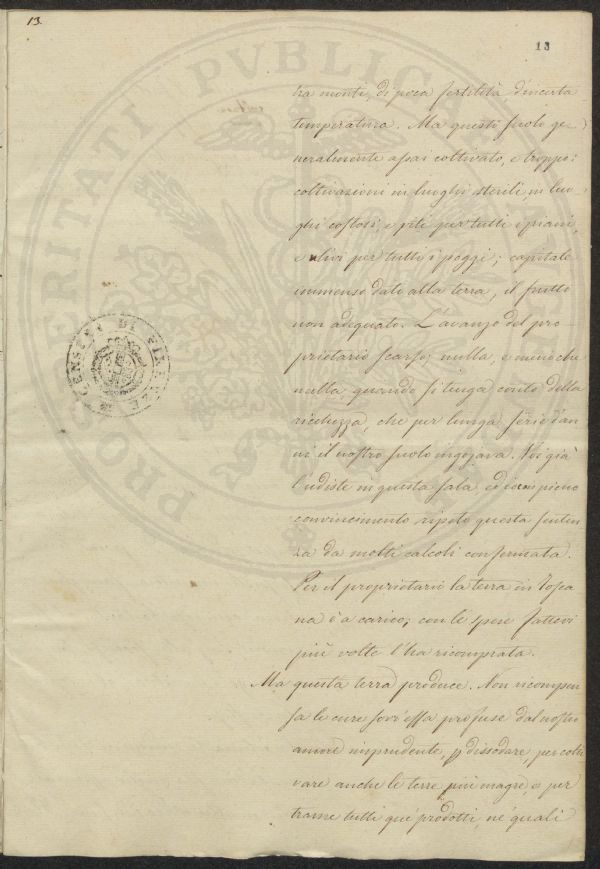 13.
13
tra monti, di poca fertilità d'incerta
temperatura. Ma questo suolo ge-
neralmente assai coltivato, e troppo:
coltivazioni in luoghi sterili, in luo-
ghi costosi, e viti per tutti i piani,
e ulivi per tutti i poggi; capitale
immenso dato alla terra, il frutto
non adeguato. L'avanzo del pro-
prietario scarso; nulla, e meno che
nulla, quando si tenga conto della
ricchezza, che per lunga serie d'an
ni il nostro suolo ingojava. Voi già
l'udiste in questa sala, ed io con pieno
convincimento ripeto questa senten
za da molti calcoli confermata.
Per il proprietario la terra in Tosca
na è a carico; con le spese fattevi
più volte l'ha ricomprata.
Ma questa terra produce. Non ricompen
sa le cure sovr'essa profuse dal nostro
amore imprudente, p dissodare, per colti
vare anche le terre più magre, e per
trarne tutti que' prodotti, ne' quali
PROSPERITATI PVBLICAE
DI FIRENZE